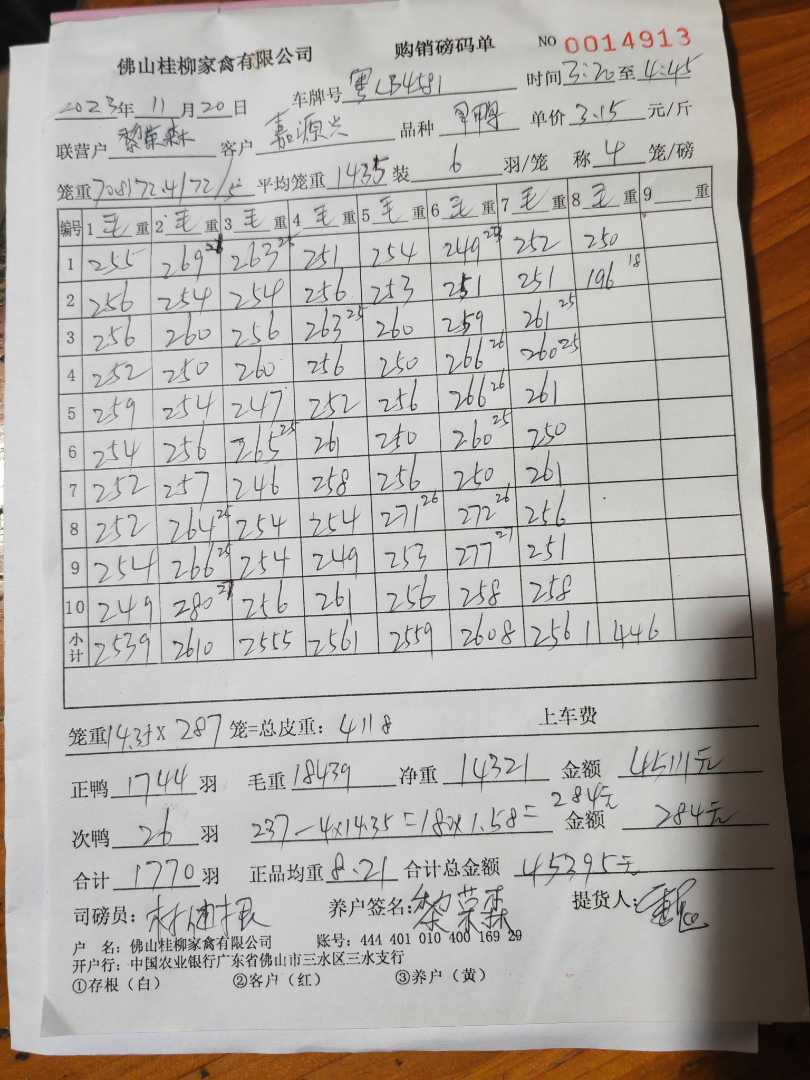 佛山桂柳家禽有限公司 购销磅码单 NO 0014913
2023年 11月20日 车牌号 粤LB4581 时间 3:20 至 4:45
联营户 黎荣森 客户 嘉源兴 品种 单价 3.15 元/斤
笼重 平均笼重 1435 装 6 羽/笼 称 4 笼/磅
编号 1 毛 重 2 毛 重 3 毛 重 4 毛 重 5 毛 重 6 毛 重 7 毛 重 8 毛 重 9 重
1 255 269 263 25 251 254 249 252 250
2 256 254 254 256 253 251 251 196 18
3 256 260 256 263 25 260 259 261 25
4 252 250 260 256 250 266 26 260 25
5 259 254 247 252 256 266 26 261
6 254 256 265 25 261 250 260 25 250
7 252 257 246 258 256 250 261
8 252 264 25 254 254 271 26 272 26 256
9 254 266 25 254 249 253 277 27 251
10 249 280 27 256 261 256 258 258
小计 2539 2610 2555 2561 2559 2608 2561 446
笼重 14.35 x 287 笼=总皮重: 4118 上车费
正鸭 1744 羽 毛重 18439 净重 14321 金额 45111元
次鸭 26 羽 237-4x14.35=18x1.58= 284元 金额 284元
合计 1770 羽 正品均重 8.21 合计总金额 45395元
司磅员: 养户签名: 黎荣森 提货人:
户 名: 佛山桂柳家禽有限公司 账号: 444 401 010 400 169 29
开户行: 中国农业银行广东省佛山市三水区三水支行
①存根(白) ②客户(红) ③养户(黄)